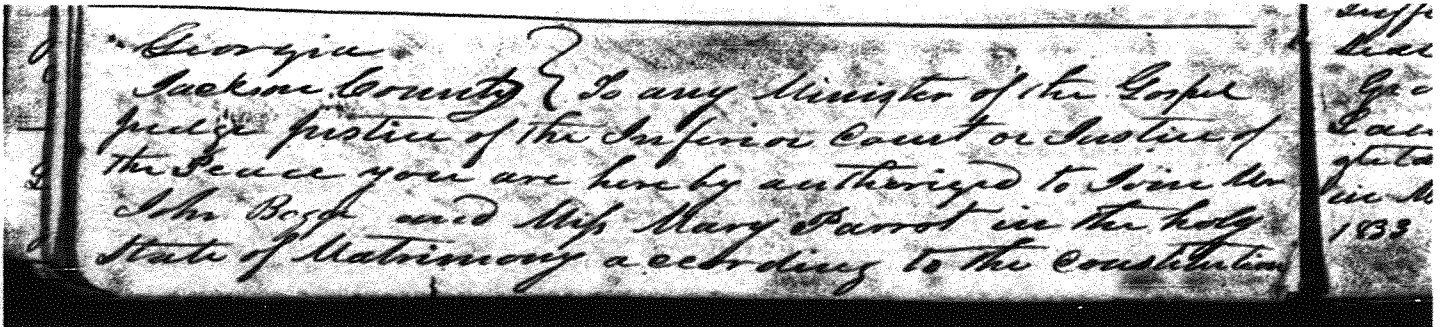 Georgia
Jackson County } To any Minister of the Gospel
Judge Justice of the Inferior Court or Justice of
the Peace you are hereby authorized to Join Mr
John and Miss Mary Parrot in the holy
State of Matrimony according to the Constitution
in M
1833